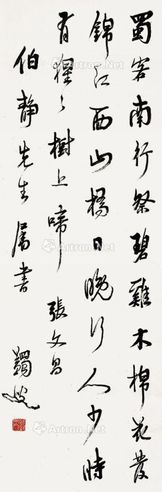 蜀客南行祭碧雞木棉花發
錦江西山橋日晚行人少時
有猩〻樹上啼 張文昌
伯靜先生屬書
蠲叟